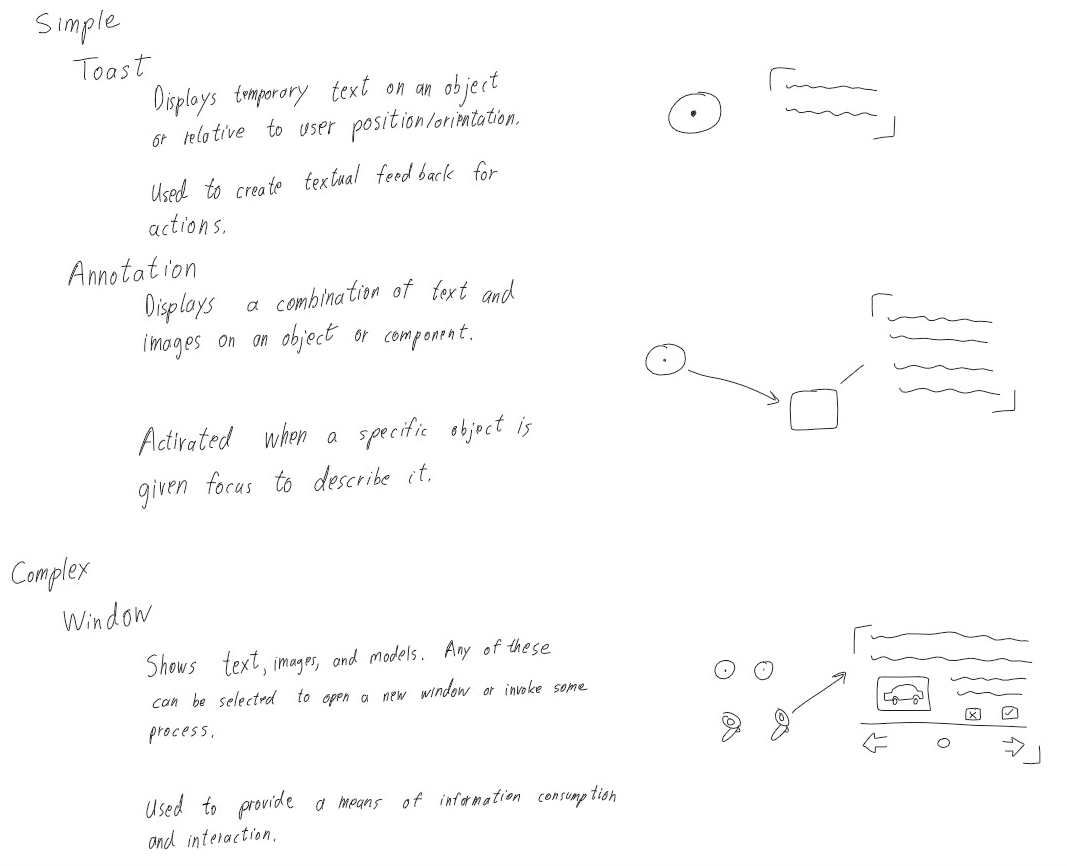 Simple
Toast
Displays temporary text on an object
or relative to user position/orientation.
Used to create textual feedback for
actions.
Annotation
Displays a combination of text and
images on an object or component.
Activated when a specific object is
given focus to describe it.
Complex
Window
Shows text, images, and models. Any of these
can be selected to open a new window or invoke some
process.
Used to provide a means of information consumption
and interaction.